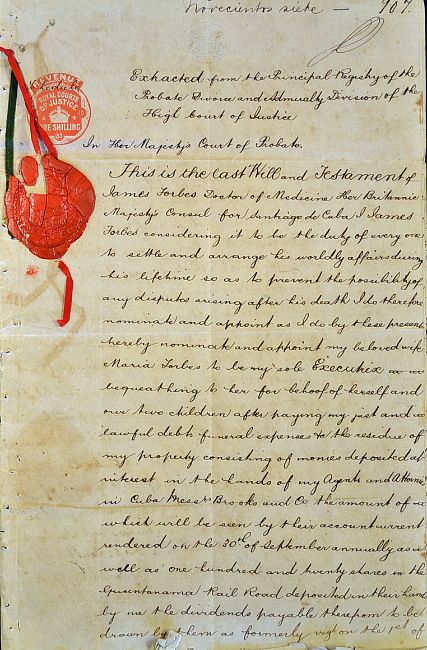 Novecientos siete — 907.
REVENUE
ROYAL COURTS
OF JUSTICE
ONE SHILLING
Extracted from the Principal Registry of the
Probate Divorce and Admiralty Division of the
High Court of Justice
In Her Majesty's Court of Probate.
This is the last Will and Testament of
James Forbes Doctor of Medicine Her Britannic
Majesty's Consul for Santiago de Cuba I James
Forbes considering it to be the duty of every one
to settle and arrange his worldly affairs during
his lifetime so as to prevent the possibility of
any disputes arising after his death I do therefore
nominate and appoint as I do by these presents
hereby nominate and appoint my beloved wife
Maria Forbes to be my sole Executrix
bequeathing to her for behoof of herself and
our two children after paying my just and
lawful debts funeral expenses &c the residue of
my property consisting of monies deposited at
interest in the hands of my Agents and Attorneys
in Cuba Messrs Brooks and Co the amount of
which will be seen by their account current
rendered on the 30th of September annually as
well as one hundred and twenty shares in the
Guantanama Rail Road deposited in their hands
by me the dividends payable therefrom to be
drawn by them as formerly vizt on the 1st of